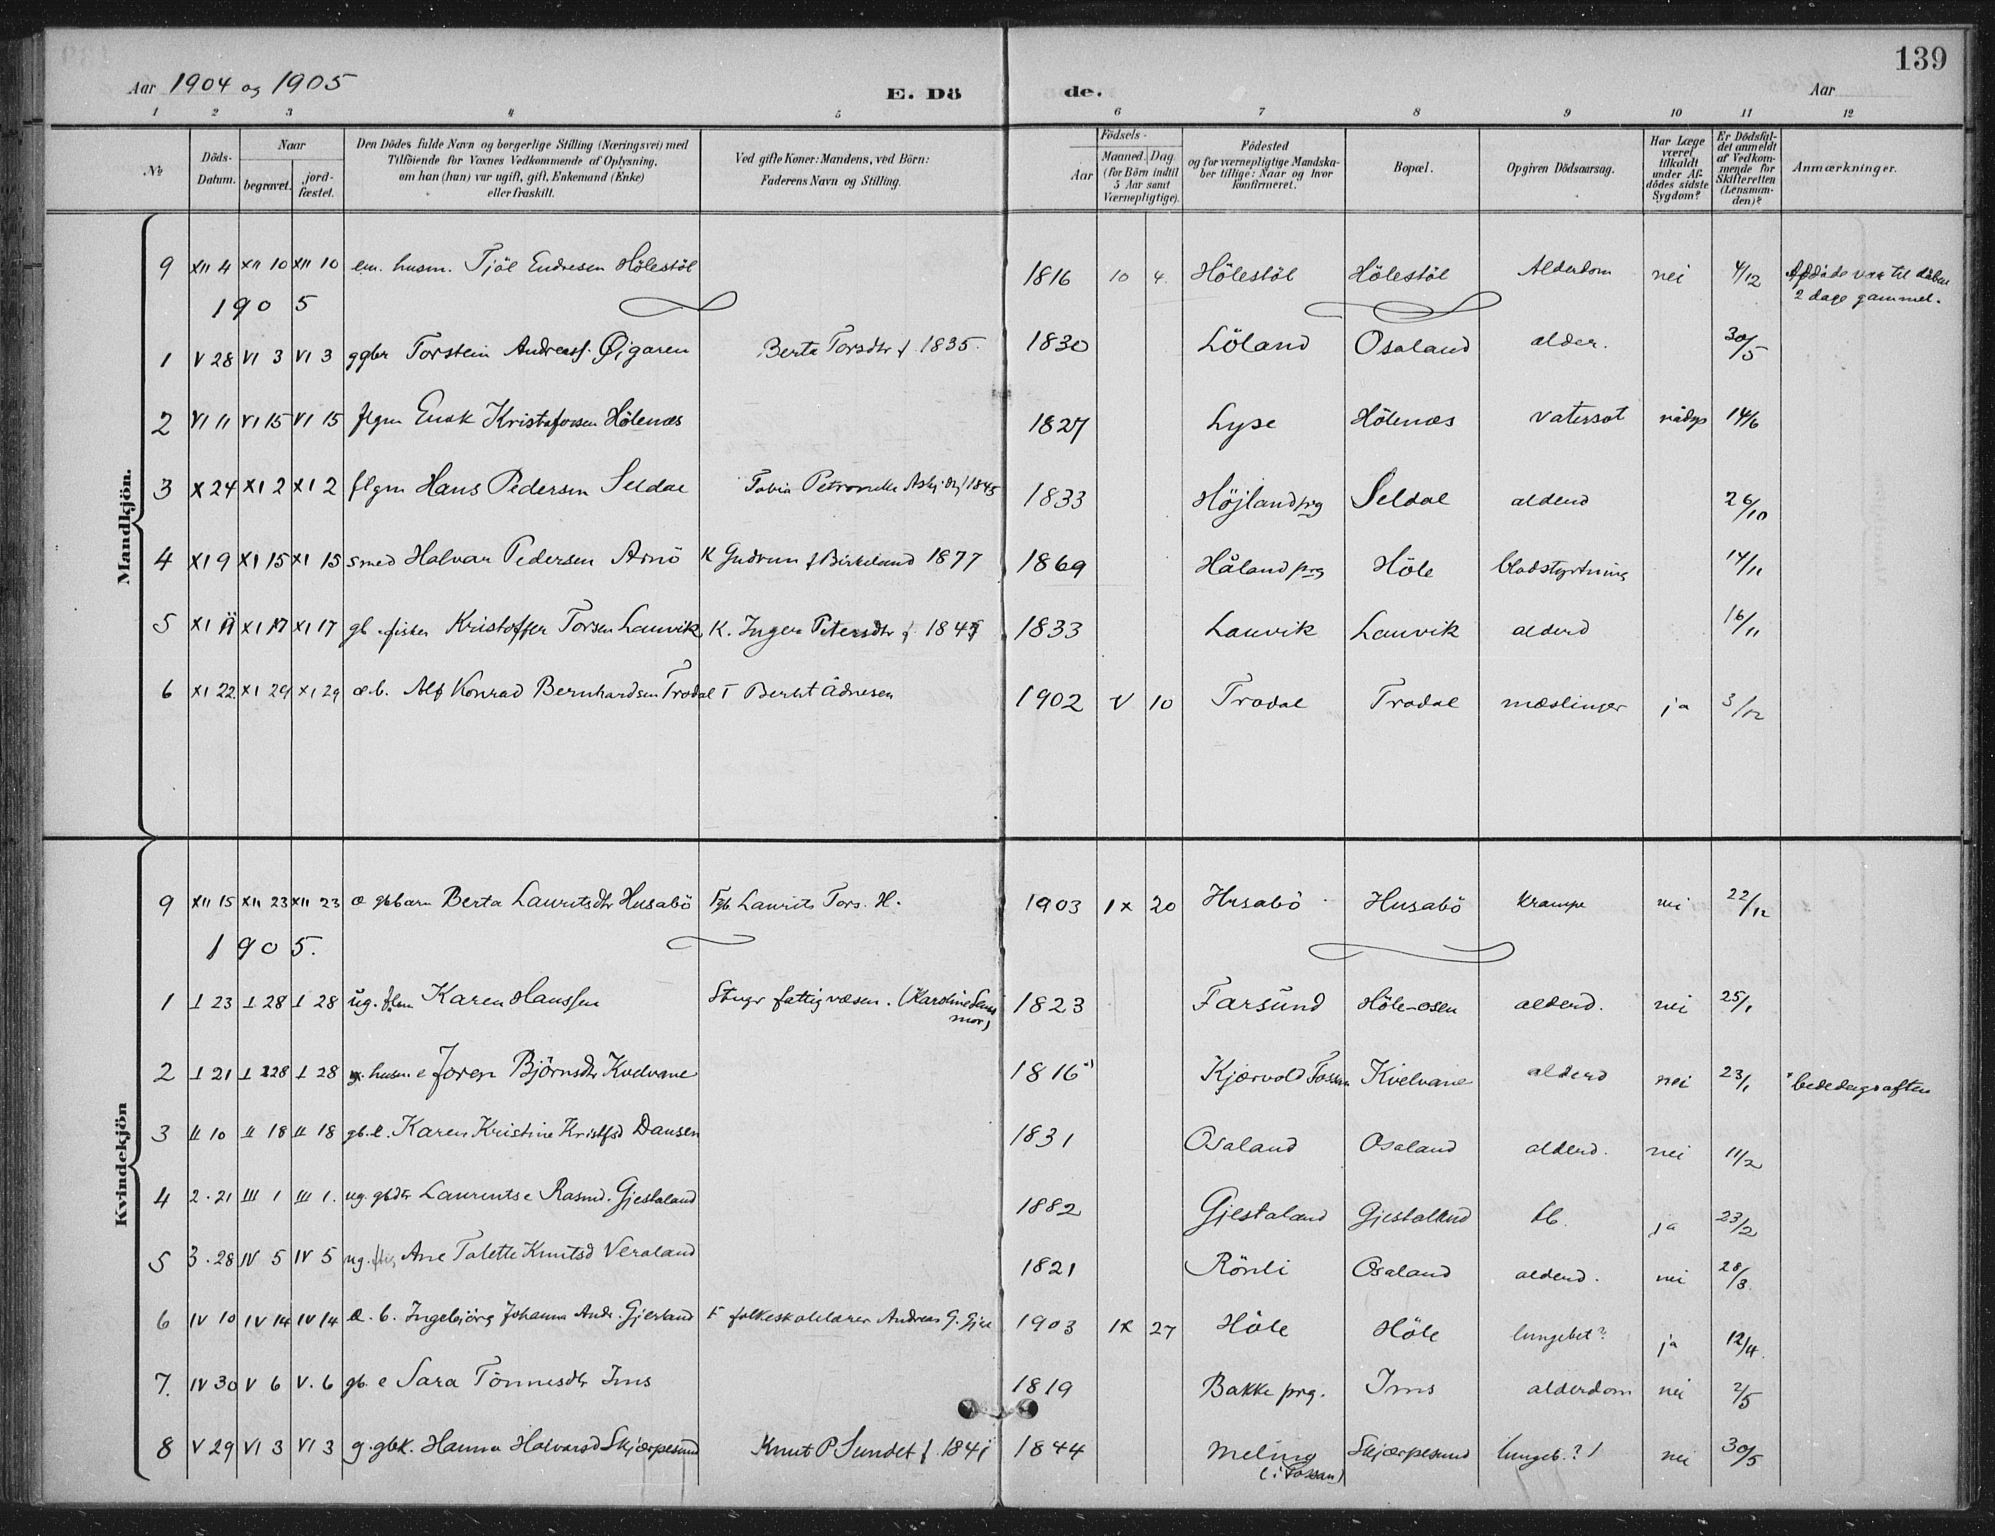 139
Aar 1904 og 1905 E. Dö de. Aar
1 2 3 4 5 6 7 8 9 10 11 12
№
Döds-Datum.
Naar
begravet.
jord-fæstet.
Den Dödes fulde Navn og borgerlige Stilling (Næringsvei) med
Tilföiende for Voxnes Vedkommende af Oplysning,
om han (hun) var ugift, gift, Enkemand (Enke)
eller fraskilt.
Ved gifte Koner: Mandens, ved Börn:
Faderens Navn og Stilling.
Födsels-
Aar
Maaned. Dag
(for Börn indtil
5 Aar samt
Værnepligtige).
Födested
og for værnepligtige Mandska-
ber tillige: Naar og hvor
konfirmeret.
Bopæl.
Opgiven Dödsaarsag.
Har Læge
været
tilkaldt
under Af-
dödes sidste
Sygdom?
Er Dödsfal-
det anmeldt
af Vedkom-
mende for
Skifteretten
(Lensman-
den)?
Anmærkninger.
Mandkjön.
9 XII 4 XII 10 XII 10 em. husm. Tjöl Endresen Hölestöl 1816 10 4. Hölestöl Hölestöl Alderdom nei 4/12 Afdöde var til dåben
2 dage gammel.
1905
1 V 28 VI 3 VI 3 ggbr Torstein Andreasf. Øigaren Berta Torsdtr f 1835. 1830 Löland Osaland alder. 30/5
2 VI 11 VI 15 VI 15 flgm Enok Kristofersen Hölenæs 1827 Lyse Hölenæs vatersot 14/6
3 X 24 XI 2 XI 2 flgm Hans Pedersen Seldal 1845 1833 Höjland prg Seldal alderd 26/10
4 XI 9 XI 15 XI 15 smed Halvar Pedersen Arnö K Gudrun f Birkeland 1877 1869 Håland prg Höle blodstyrtning 14/11
5 XI 11 XI 17 XI 17 gb. fisker Kristoffer Torsen Lauvik K. Inger Petersdtr f. 1833 Lauvik Lauvik alderd 16/11
6 XI 22 XI 29 XI 29 æ.b. Alf Konrad Bernhardsen Trodal Ådnesen 1902 V 10 Trodal Trodal mæslinger ja 3/12
Kvindekjön
9 XII 15 XII 23 XII 23 æ gbbarn Berta Lauritsdtr Husabö F gb. Laurits Tors. H. 1903 IX 20 Husabö Husabö Krampe nei 22/12
1905.
1 I 23 I 28 I 28 ug. Karen Hanssen Stvgr fattigvæsen. (Karoline
mor) 1823 Farsund Höle-osen alderd. nei 25/1
2 I 21 I 28 I 28 husm e Joren Björnsdtr Kvelvane 1816 Kjærvold Fossan Kvelvane alderd nei 23/1 bededagsaften
3 II 10 II 18 II 18 gb. e. Karen Kristine Kristfsd Dansen 1831 Osaland Osaland alderd. nei 11/2
4 2.21 III 1 III 1. ug. gbdtr Laurentse Rasmd. Gjestaland 1882 Gjestaland Gjestaland tb. ja 23/2
5 3.28 IV 5 IV 5 ug. Ane Talette Knutsd Veraland 1821 Rönli Osaland alderd. nei 28/3.
6 IV 10 IV 14 IV 14 æ. b. Ingebjörg Johanna Andr. Gjesland F folkeskolelærer Andreas G. 1903 IX 27 Höle Höle lungebet? ja 12/4.
7. IV 30 V 6 V. 6 gb. e Sara Tönnesdtr Ims 1819 Bakke prg. Ims alderdom nei 2/5
8 V 29 VI 3 VI 3 g. gbk. Hanna Halvarsd Skjærpesund Knut P. Sundet f 1841 1844 Meling
(i Fossan) Skjærpesund lungeb.? nei 30/5